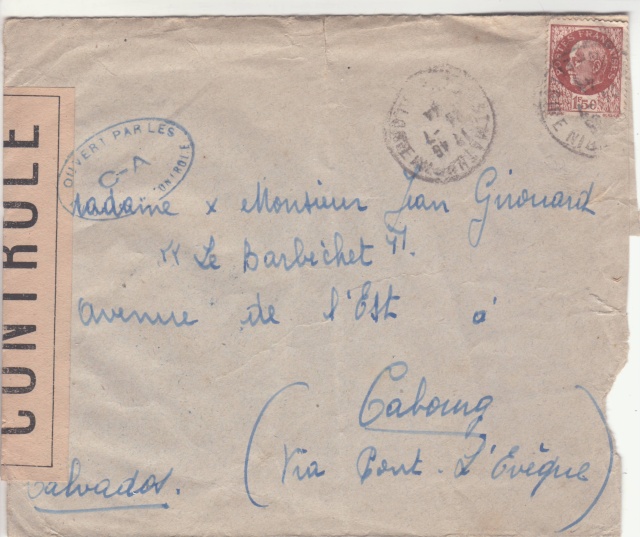 CONTROLE
OUVERT PAR LES
C-A
CONTROLE
1F50
Madame x Monsieur Jean Girouard
"Le Barbichet".
avenue de l'Est à
Cabourg
(Via Pont-L'Evêque)
Calvados.